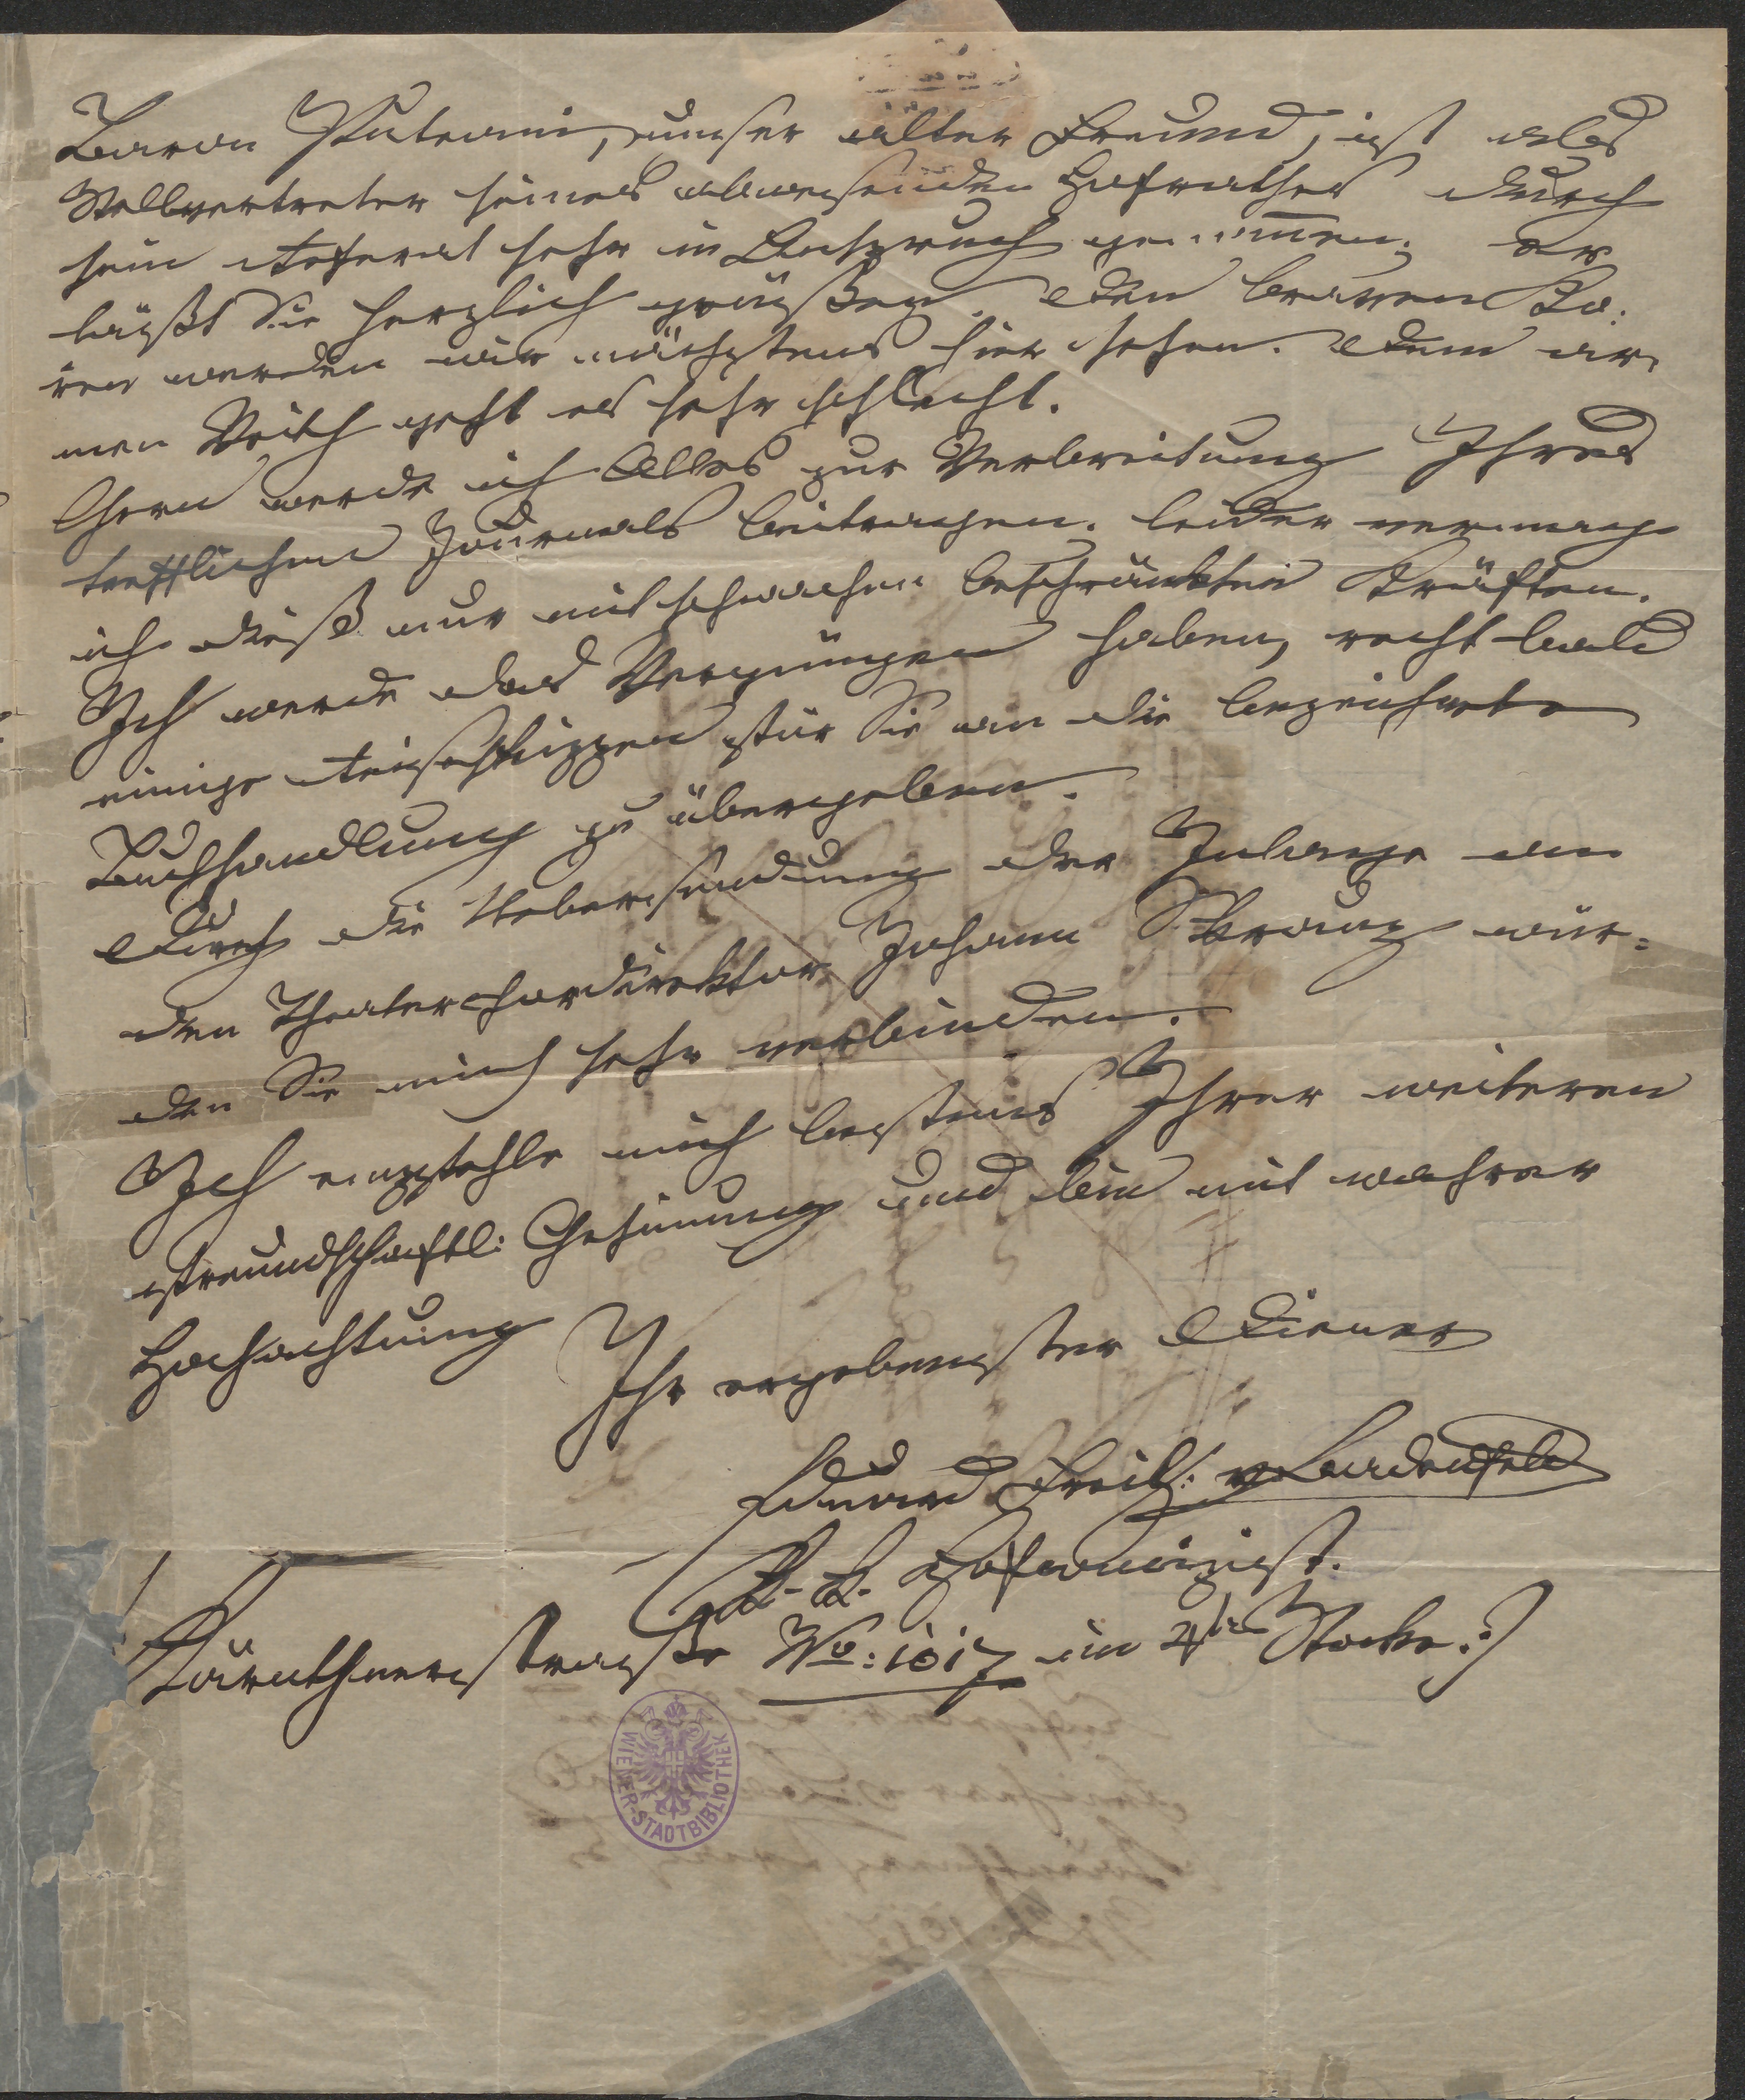 Baron Puteani, unser alter Freund, ist als
Stellvertreter seines abwesenden Hofrathes durch
sein Referat sehr in Anspruch genommen; er
läßt Sie herzlich grüßen. Den braven
werden wir nächstens hier sehen. Dem ar-
men Veith geht es sehr schlecht.
Gern werde ich Alles zur Verbreitung Ihres
trefflichen Journals beitragen. leider vermag
ich dieß nur mit schwachen beschränkten Kräften.
Ich werde das Vergnügen haben, recht bald
einige Reiseskizzen für Sie an die bezeichnete
Buchhandlung zu übergeben.
Durch die Uebersendung der Inlage an
den Theaterchordirektor Johann Skraup wür=
den Sie mich sehr verbinden.
Ich empfehle mich bestens Ihrer weiteren
freundschaftl: Gesinnung und bin mit wahrer
Hochachtung
Ihr ergebenster Diener
Eduard Freih: v Lannoy
K. K.
Kärnthnerstraße No: 1017 im 4ten Stocke.:)
WIENER-STADTBIBLIOTHEK